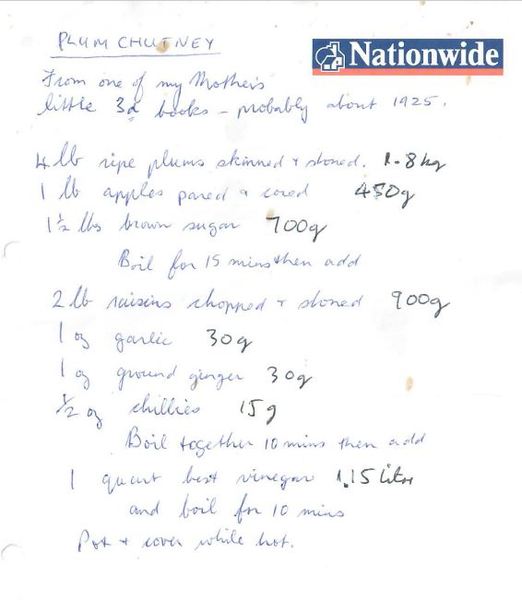 PLUM CHUTNEY
Nationwide
From one of my Mother's
little 3d books - probably about 1925.
4 lb ripe plums skinned + stoned. 1.8kg
1 lb apples pared + cored 450g
1½ lbs brown sugar 700g
Boil for 15 mins then add
2 lb raisins chopped + stoned 900g
1 oz garlic 30g
1 oz ground ginger 30g
½ oz chillies 15g
Boil together 10 mins then add
1 quart best vinegar 1.15 litre
and boil for 10 mins
Pot + cover while hot.